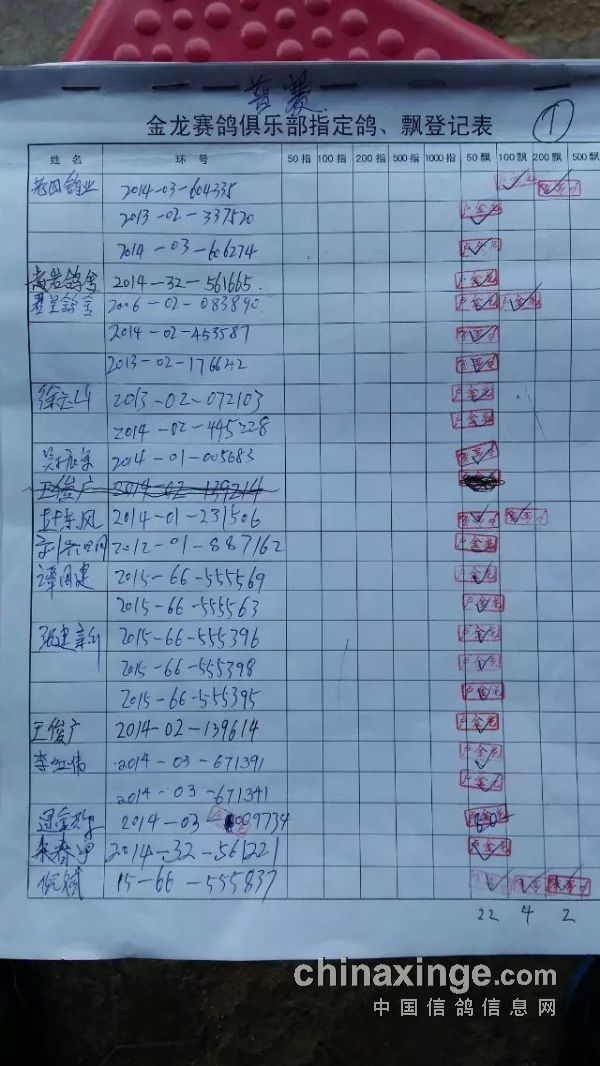 普赛
金龙赛鸽俱乐部指定鸽、飘登记表 ①
姓名 环号 50指 100指 200指 500指 1000指 50飘 100飘 200飘 500飘
2014-03-604335
2013-02-337520 卢金龙
2014-03-606274
高岩鸽舍 2014-32-561665 卢金龙
君呈鸽舍 2006-02-083890 卢金龙 卢金龙
2014-02-453587
2013-02-176642
2013-02-072103 卢金龙
2014-02-445228 卢金龙
2014-01-005683
王俊广 2014-02-139214
杜东风 2014-01-231506
2012-01-887162 卢金龙
谭国建 2015-66-555569 卢金龙
2015-66-555563 卢金龙
张建新 2015-66-555396 卢金龙
2015-66-555398 卢金龙
2015-66-555395 卢金龙
王俊广 2014-02-139614 卢金龙
李红伟 2014-03-671391 卢金龙
2014-03-671341 卢金龙
2014-03 009734
朱春甲 2014-32-561221 卢金龙
倪斌 15-66-555837
22 4 2
chinaxinge.com
中国信鸽信息网